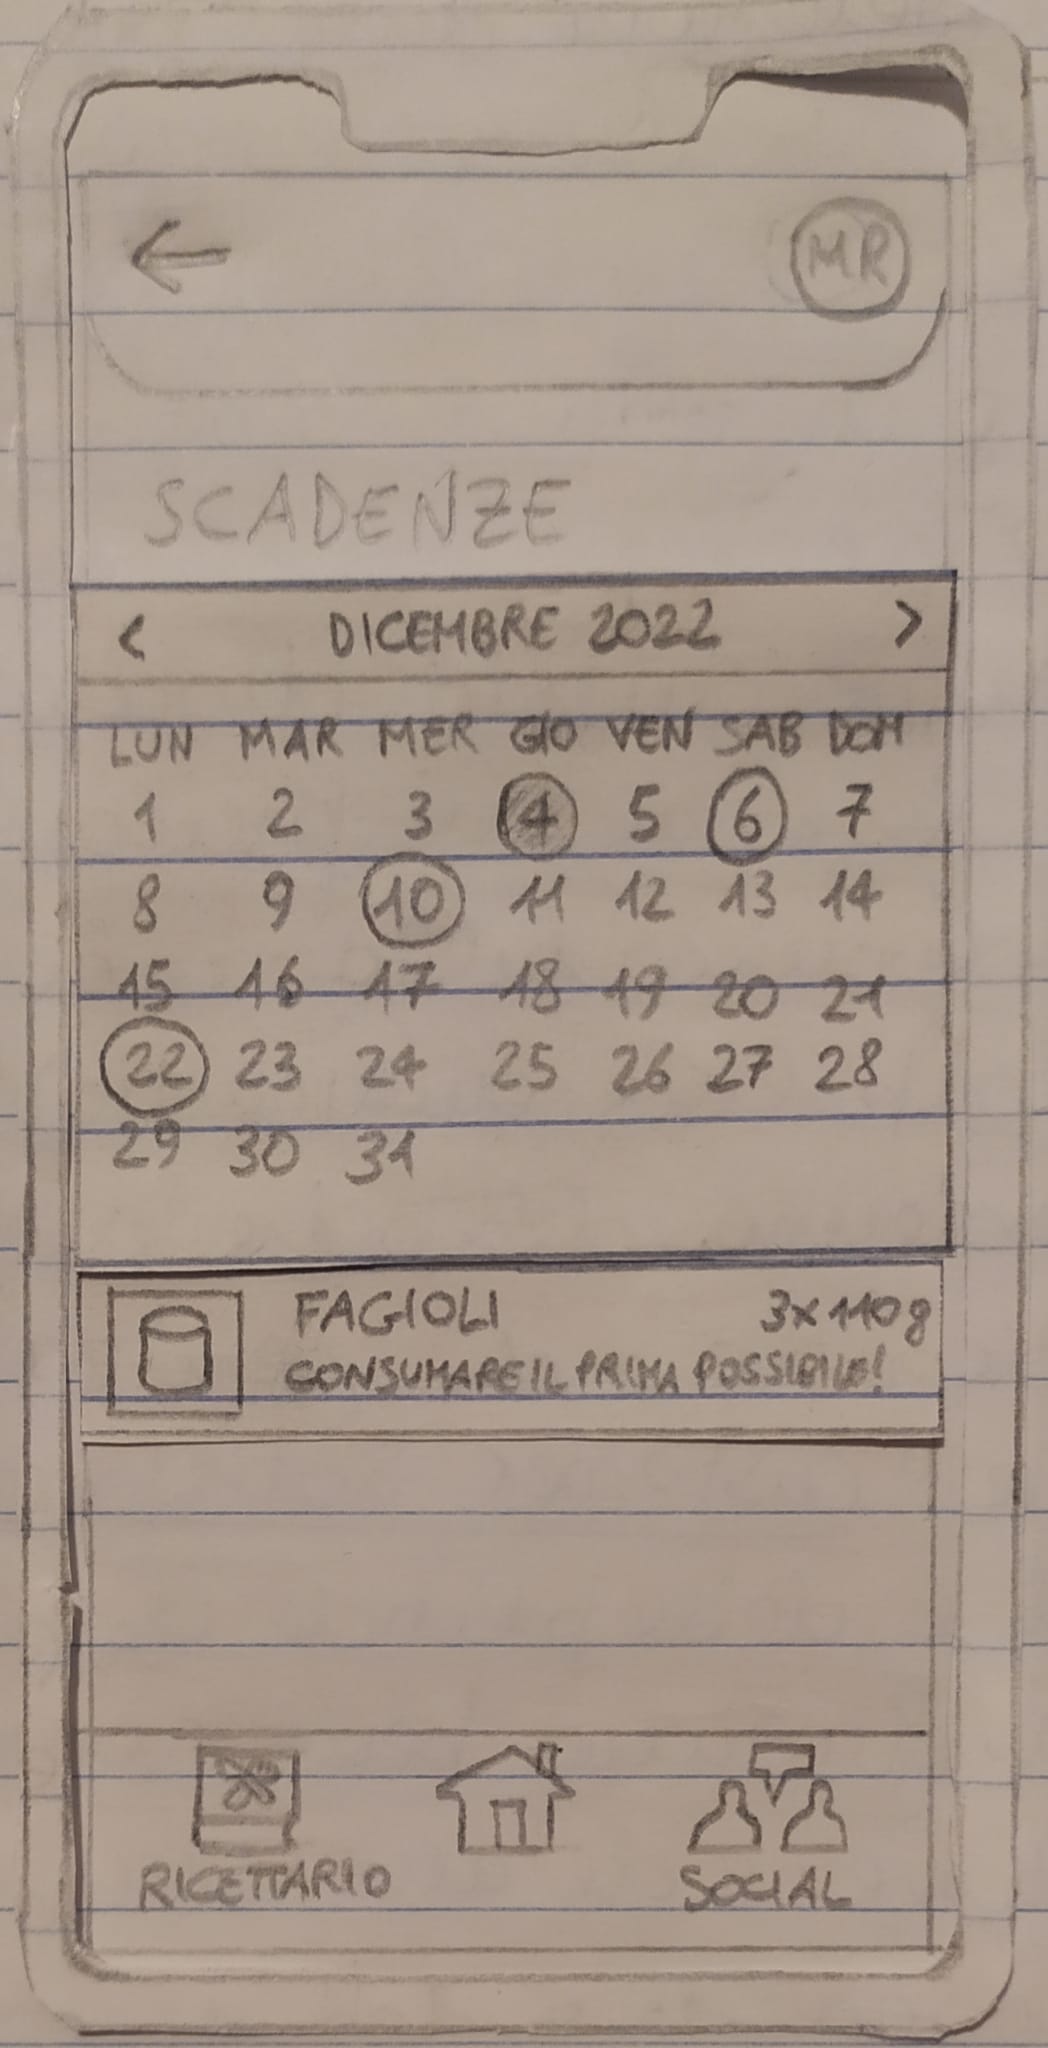 ←
MR
SCADENZE
< DICEMBRE 2022 >
LUN MAR MER GIO VEN SAB DOM
1 2 3 4 5 6 7
8 9 10 11 12 13 14
15 16 17 18 19 20 21
22 23 24 25 26 27 28
29 30 31
FAGIOLI 3x110g
CONSUMARE IL PRIMA POSSIBILE!
RICETTARIO SOCIAL